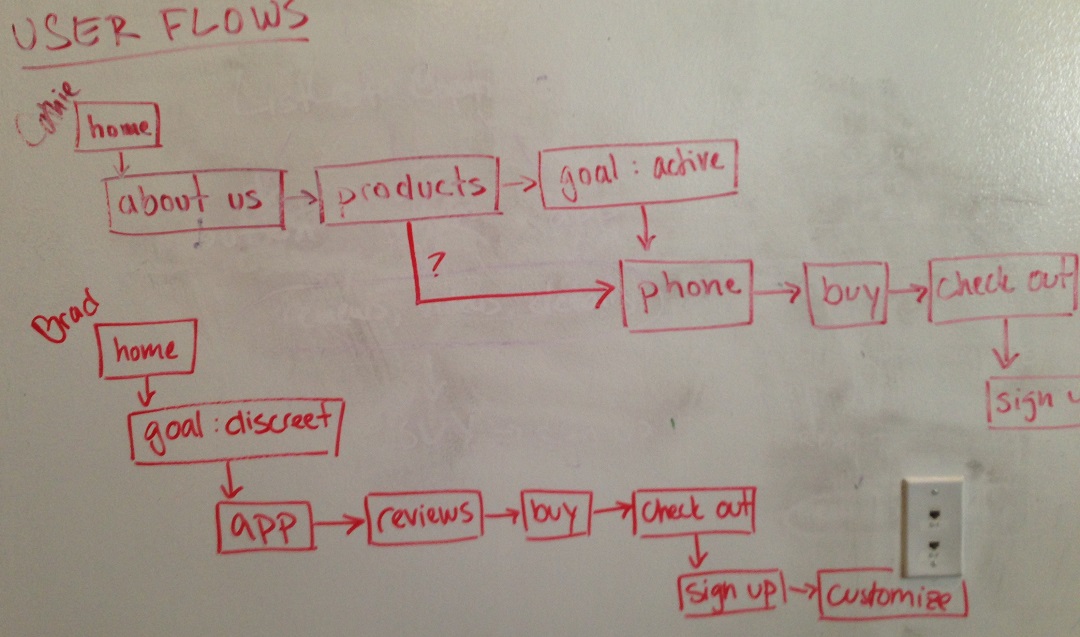 USER FLOWS
Connie
home
about us
products
goal: active
?
phone
buy
check out
sign u
Brad
home
goal: discreet
app
reviews
buy
check out
sign up
customize